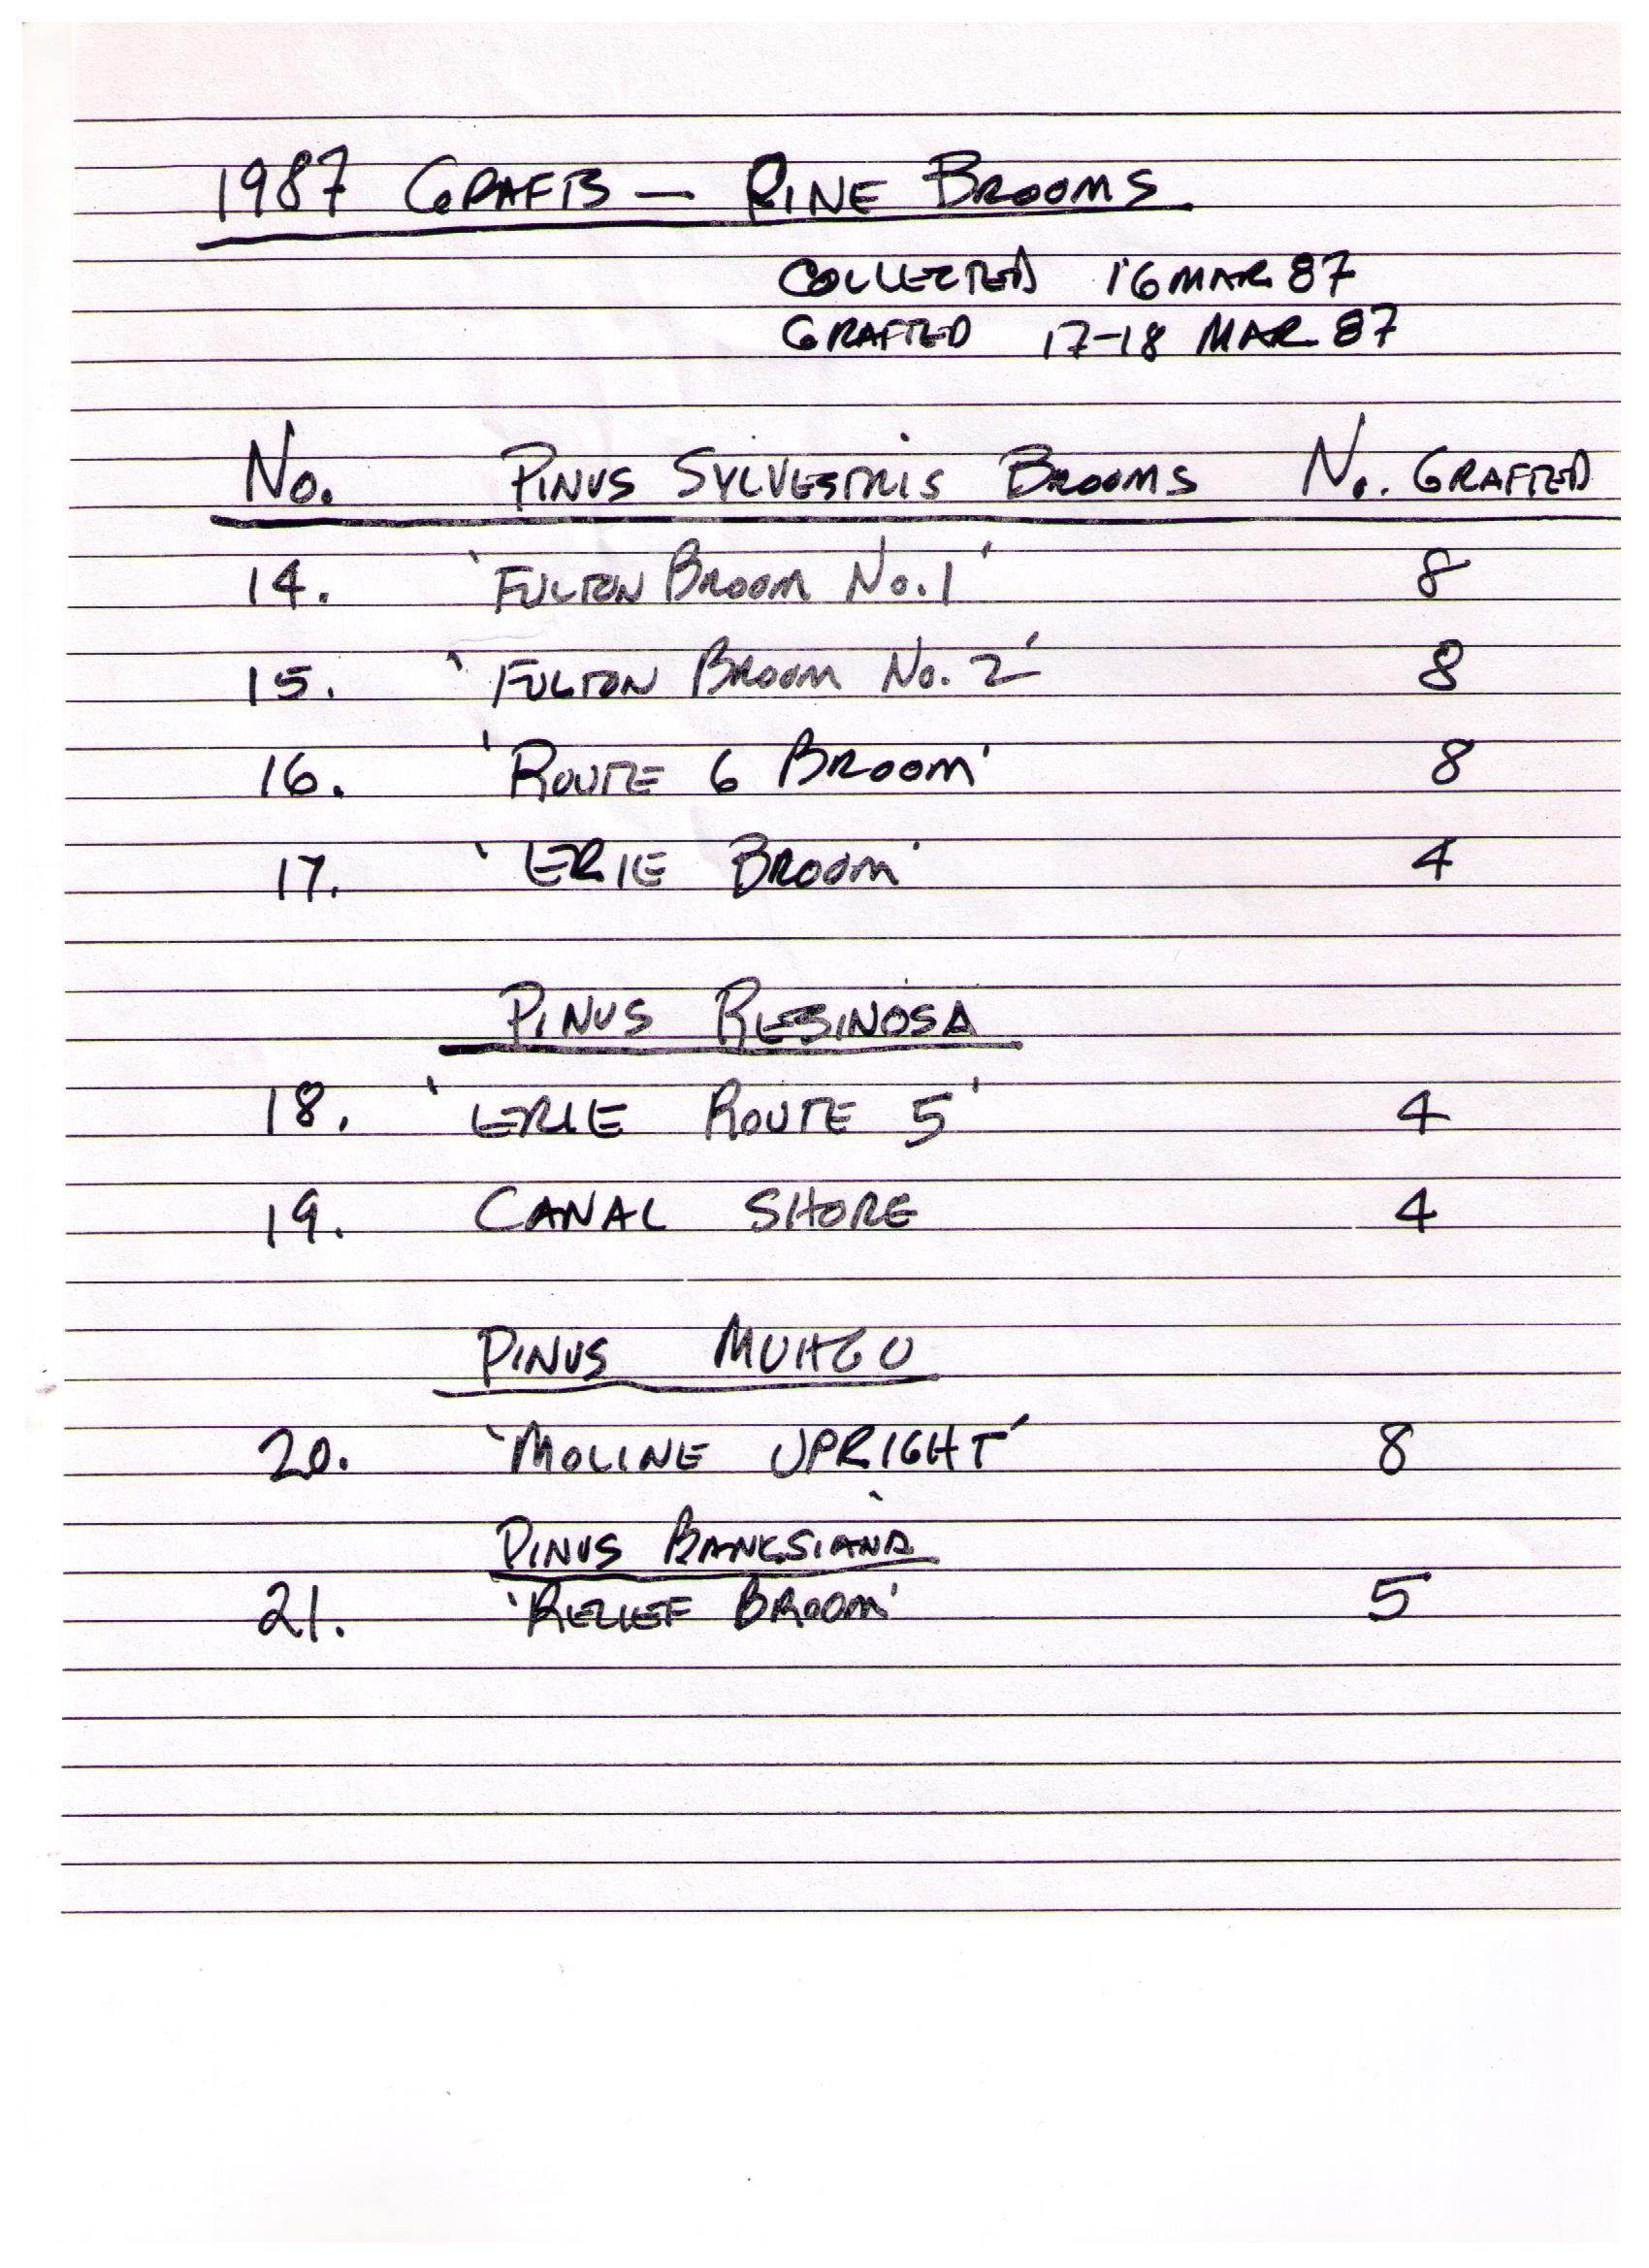 1987 GRAFTS — PINE BROOMS
COLLECTED 16 MAR 87
GRAFTED 17-18 MAR 87
No. PINUS SYLVESTRIS BROOMS No. GRAFTED
14. 'FULTON BROOM No. 1' 8
15. 'FULTON BROOM No. 2' 8
16. 'ROUTE 6 BROOM' 8
17. 'ERIE BROOM' 4
PINUS RESINOSA
18. 'ERIE ROUTE 5' 4
19. CANAL SHORE 4
PINUS MUHGO
20. 'MOLINE UPRIGHT' 8
PINUS BANKSIANA
21. 'RELIEF BROOM' 5